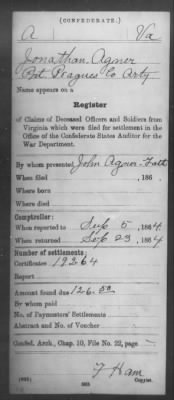 (CONFEDERATE.)
A Va
Jonathan Agner
Pvt Poagues Co Arty
Name appears on a
Register
of Claims of Deceased Officers and Soldiers from
Virginia which were filed for settlement in the
Office of the Confederate States Auditor for the
War Department.
By whom presented John Agner - Fath
When filed , 186 .
Where born
Where died
Comptroller:
When reported to Sep 5, 1864
When returned Sep 23, 1864
Number of settlements:
Certificates 19264
Report
Amount found due 126.
By whom paid
No. of Paymasters' Settlements
Abstract and No. of Voucher
Confed. Arch., Chap. 10, File No. 22, page
Ham
Copyist.